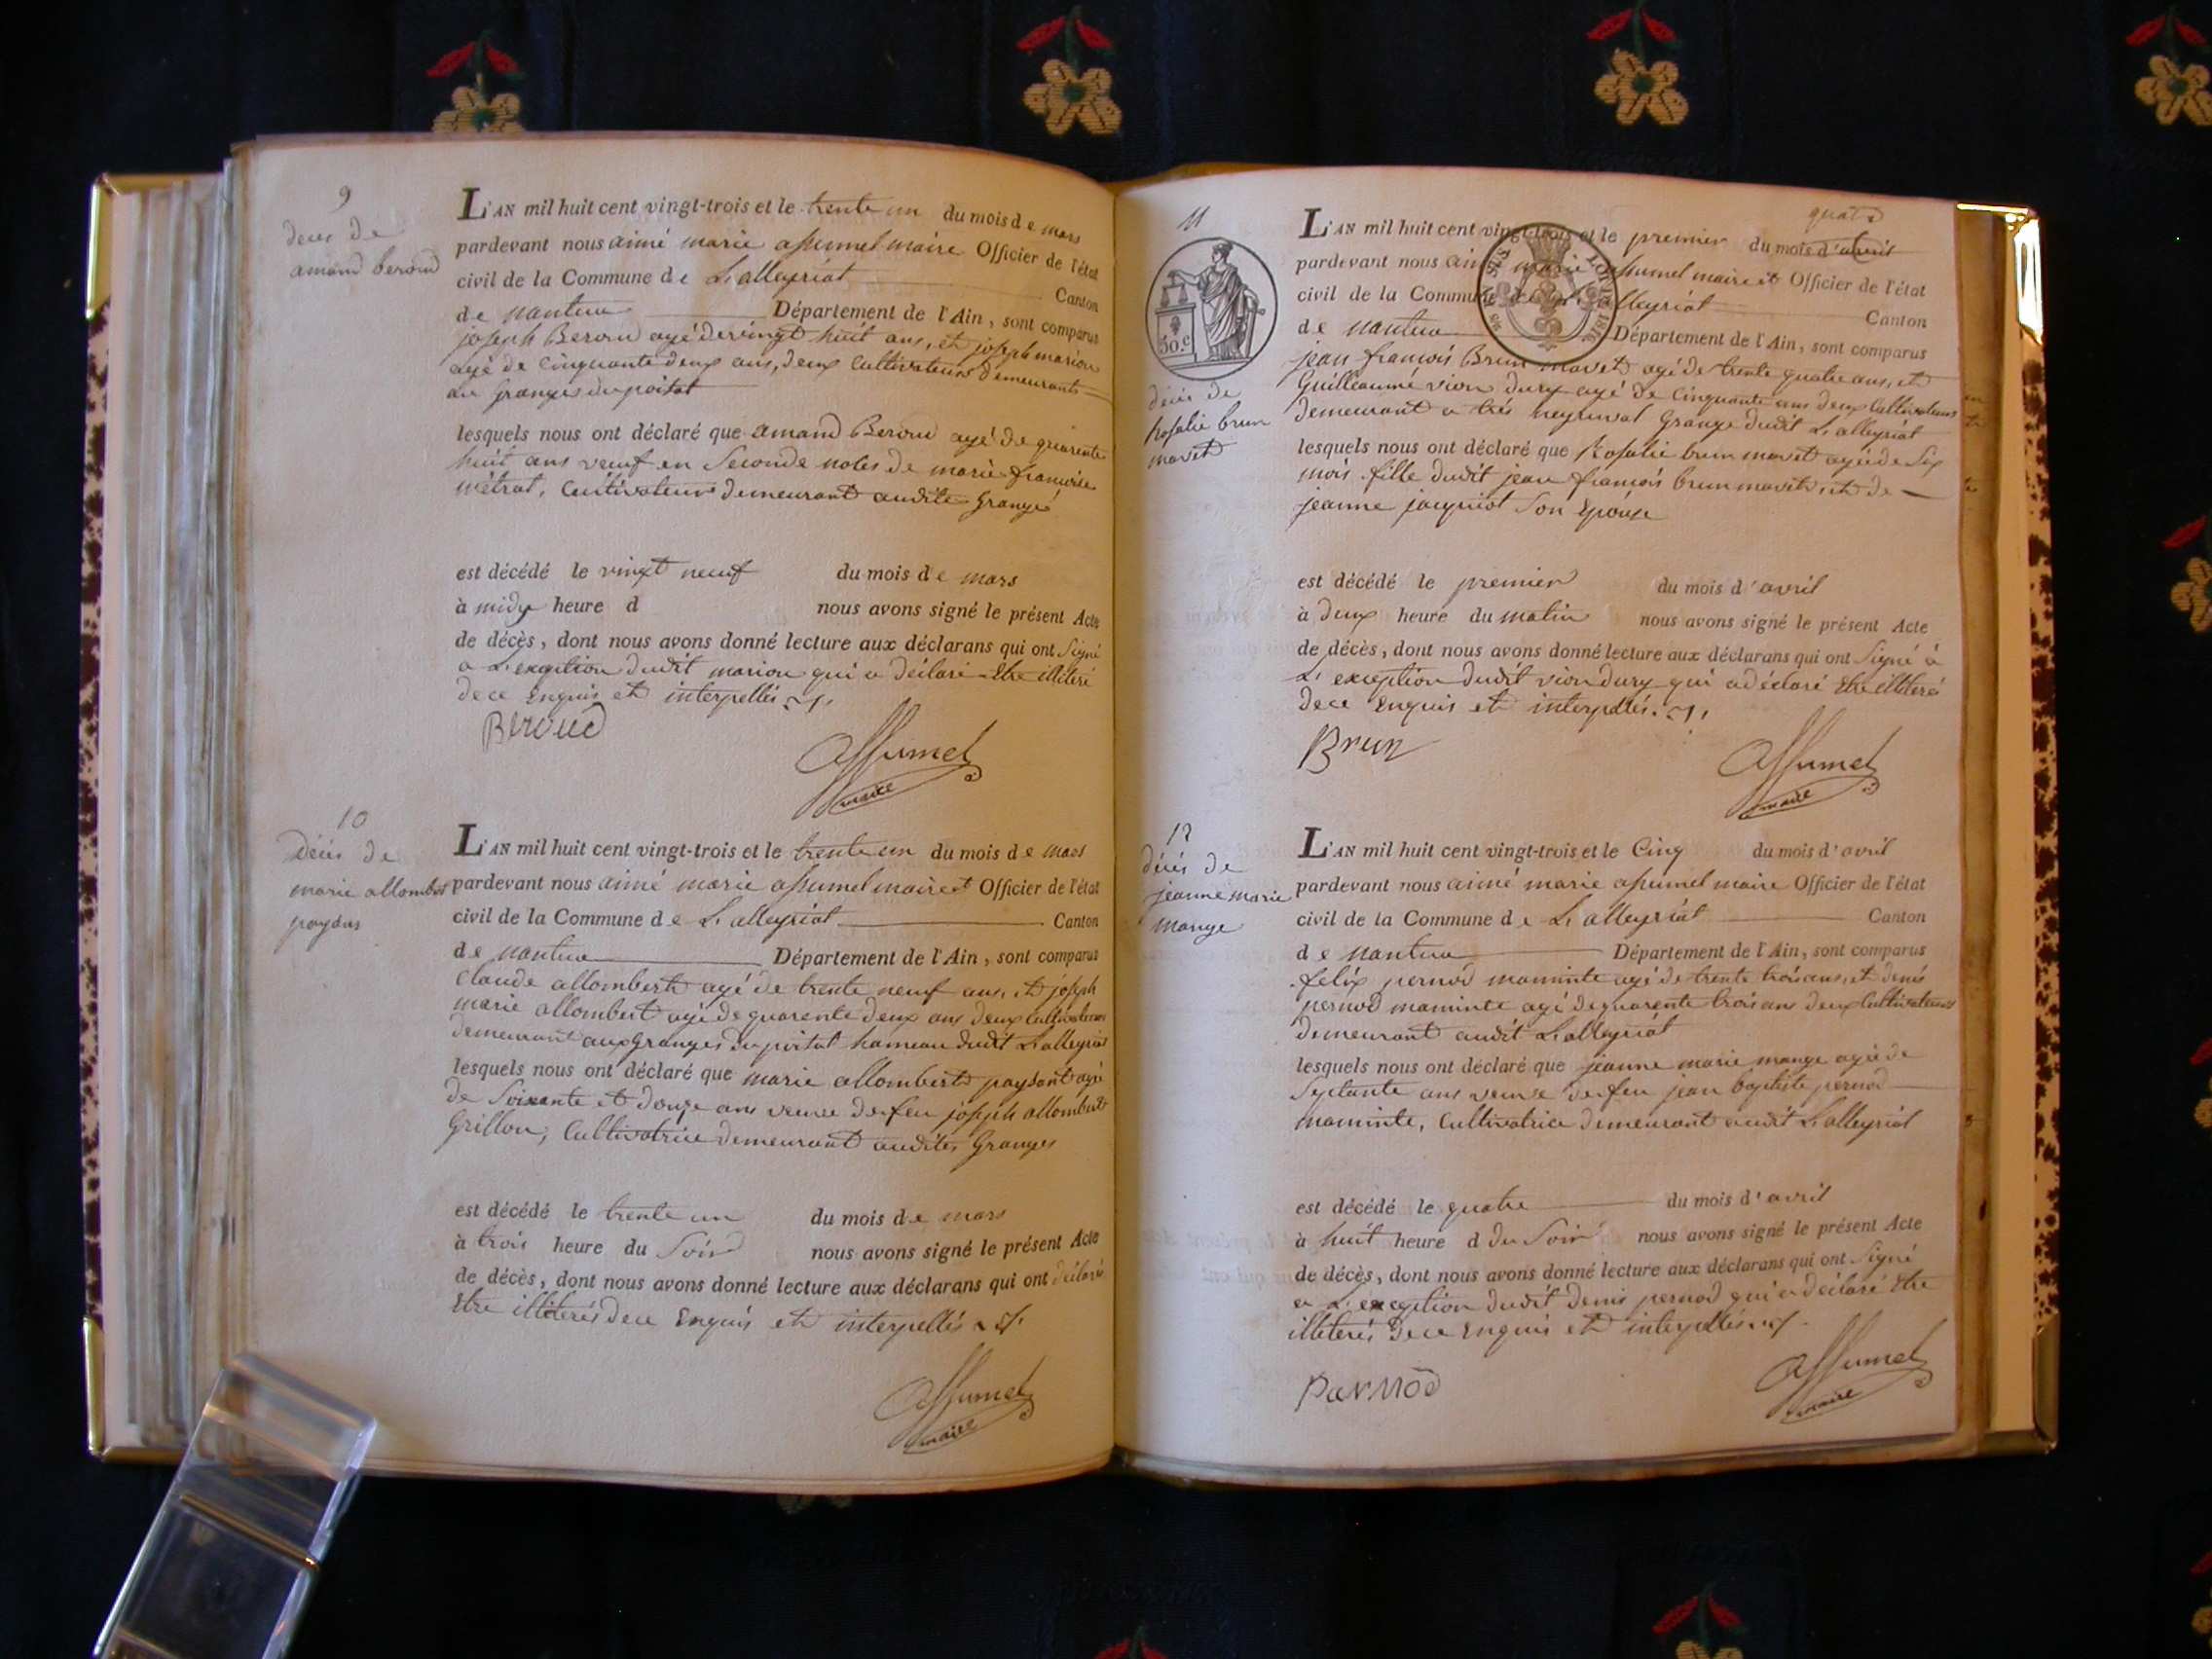 9
deces de
amand beroud
L'AN mil huit cent vingt-trois et le trente un du mois de mars
pardevant nous aimé marie assumel maire Officier de l'état
civil de la Commune de L'alleyriat Canton
de nantua Département de l'Ain, sont comparus
joseph Beroud agé de vingt huit ans, et joseph marion
agé de cinquante deux ans, deux Cultivateurs demeurants
au Granges du poisat
lesquels nous ont déclaré que amand Beroud agé de quarente
huit ans veuf en Seconde noles de marie françoise
métrat, Cultivateur demeurant audite Granges
est décédé le vingt neuf du mois de mars
à midy heure d nous avons signé le présent Acte
de décès, dont nous avons donné lecture aux déclarans qui ont Signé
a L'exception dudit marion qui a déclaré Etre illiteré
dece Enquis et interpellés
Beroud
Assumel
maire
10
Décés de
marie allombert
paysans
L'AN mil huit cent vingt-trois et le trente un du mois de mars
pardevant nous aimé marie assumel maire et Officier de l'état
civil de la Commune de L'alleyriat Canton
de nantua Département de l'Ain, sont comparus
Claude allombert agé de trente neuf ans, et joseph
marie allombert agé de quarente deux ans deux Cultivateurs
demeurant aux Granges du poisat hameau dudit L'alleyriat
lesquels nous ont déclaré que marie allombert paysant agé
de Soixante et douze ans veuve de feu joseph allombert
Grillon, Cultivatrice demeurant audites Granges
est décédé le trente un du mois de mars
à trois heure du Soir nous avons signé le présent Acte
de décès, dont nous avons donné lecture aux déclarans qui ont déclaré
Etre illiterés dece Enquis et interpellés
Assumel
maire
11
50.c
décés de
Rosalie brun
mavet
quatre
L'AN mil huit cent vingt-trois et le premier du mois d'avril
pardevant nous aimé marie assumel maire et Officier de l'état
civil de la Commune de L'alleyriat Canton
de nantua Département de l'Ain, sont comparus
jean françois Brun mavet agé de trente quatre ans, et
Guilleaumé vion dury agé de Cinquante ans deux Cultivateurs
demeurant a trés neyruval Grange dudit L'alleyriat
lesquels nous ont déclaré que Rosalie brun mavet agée de Six
mois fille dudit jean françois brun mavet, et de
jeanne jacquiot Son Epouse
est décédé le premier du mois d'avril
à deux heure du matin nous avons signé le présent Acte
de décès, dont nous avons donné lecture aux déclarans qui ont Signé à
L'exception dudit vion dury qui a déclaré Etre illiteré
dece Enquis et interpellés.
Brun
Assumel
maire
12
décés de
jeanne marie
mange
L'AN mil huit cent vingt-trois et le Cinq du mois d'avril
pardevant nous aimé marie assumel maire Officier de l'état
civil de la Commune de L'alleyriat Canton
de nantua Département de l'Ain, sont comparus
felix pernod maminte agé de trente trois ans, et denis
pernod maminte agé de quarente trois ans deux Cultivateurs
demeurant audit L'alleyriat
lesquels nous ont déclaré que jeanne marie mange agée de
Septante ans veuve de feu jean baptiste pernod
maminte, Cultivatrice demeurant audit L'alleyriat
est décédé le quatre du mois d'avril
à huit heure d du Soir nous avons signé le présent Acte
de décès, dont nous avons donné lecture aux déclarans qui ont Signé
a L'exception dudit denis pernod qui a déclaré Etre
illiterés dece Enquis et interpellés
Parnod
Assumel
maire